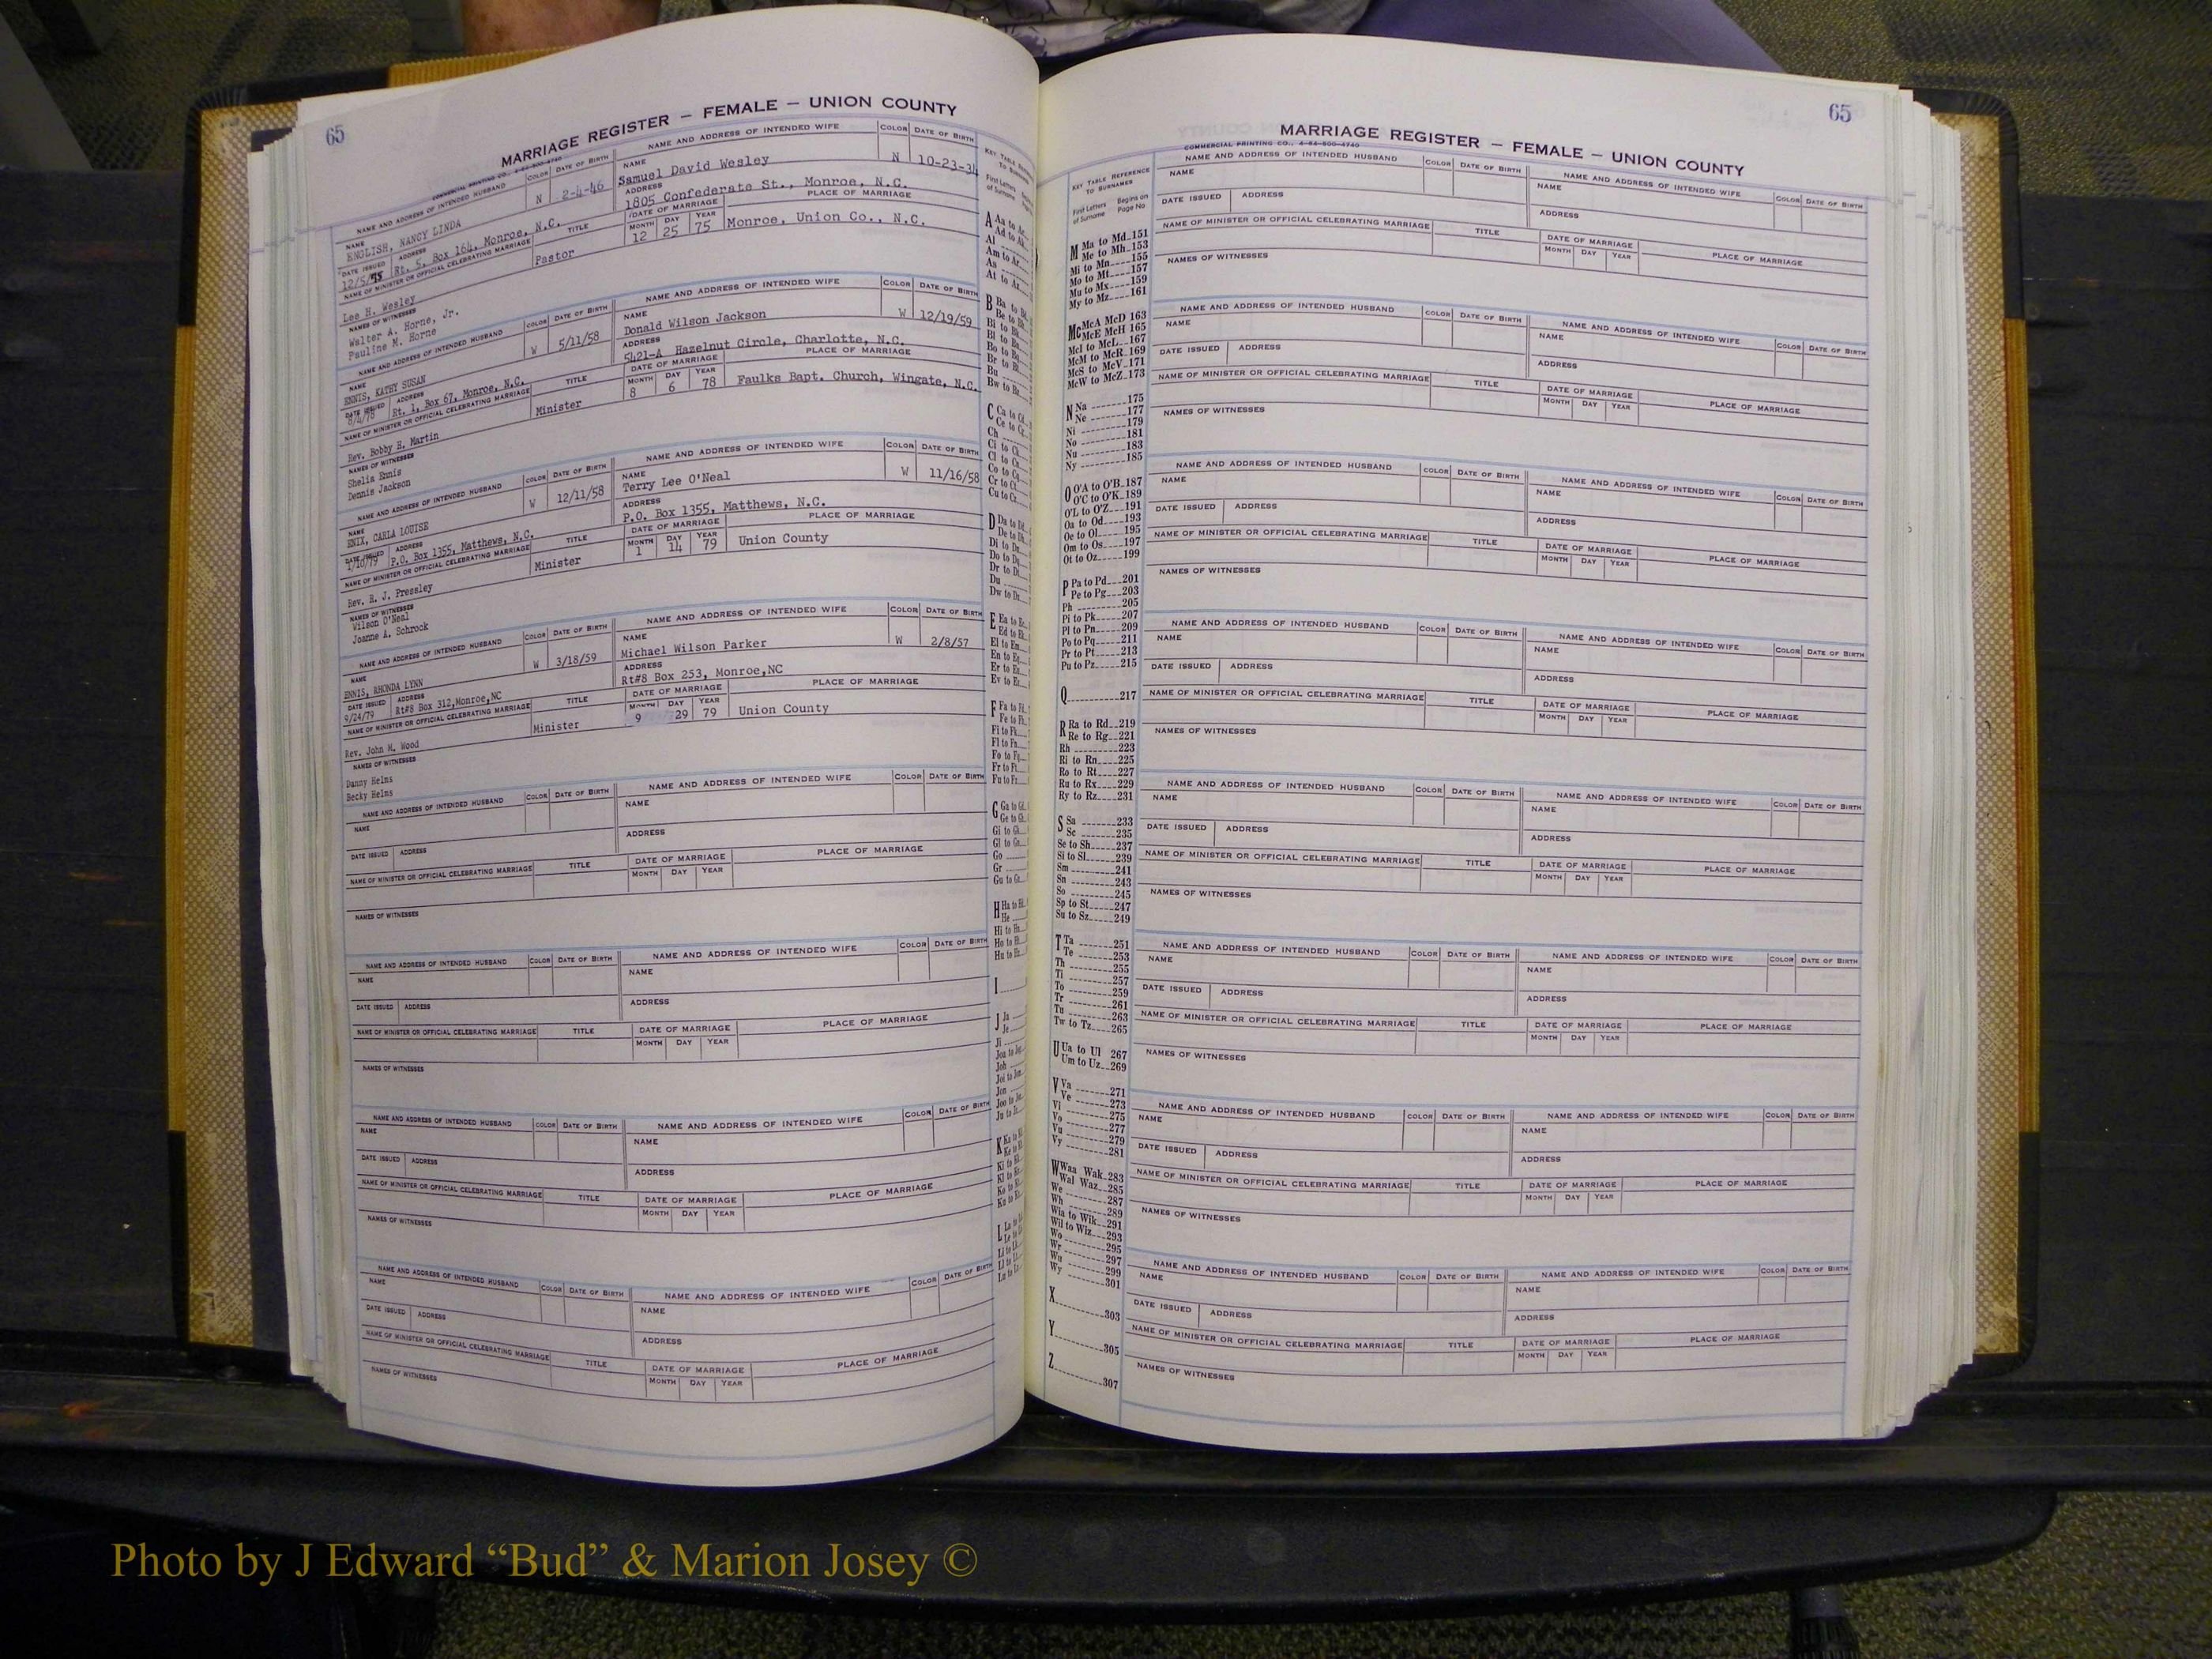 65
MARRIAGE REGISTER – FEMALE – UNION COUNTY
COMMERCIAL PRINTING CO.,
NAME AND ADDRESS OF INTENDED HUSBAND COLOR DATE OF BIRTH NAME AND ADDRESS OF INTENDED WIFE COLOR DATE OF BIRTH
NAME ENGLISH, NANCY LINDA N 2-4-46 NAME Samuel David Wesley N 10-23-34
DATE ISSUED 12/5/75 ADDRESS Rt. 5, Box 164, Monroe, N.C. ADDRESS 1805 Confederate St., Monroe, N.C.
NAME OF MINISTER OR OFFICIAL CELEBRATING MARRIAGE TITLE DATE OF MARRIAGE PLACE OF MARRIAGE
Lee H. Wesley Pastor MONTH 12 DAY 25 YEAR 75 Monroe, Union Co., N.C.
NAMES OF WITNESSES
Walter A. Horne, Jr.
Pauline M. Horne
NAME AND ADDRESS OF INTENDED HUSBAND COLOR DATE OF BIRTH NAME AND ADDRESS OF INTENDED WIFE COLOR DATE OF BIRTH
NAME ENNIS, KATHY SUSAN W 5/11/58 NAME Donald Wilson Jackson W 12/19/59
DATE ISSUED 8/4/78 ADDRESS Rt. 1, Box 67, Monroe, N.C. ADDRESS 5421-A Hazelnut Circle, Charlotte, N.C.
NAME OF MINISTER OR OFFICIAL CELEBRATING MARRIAGE TITLE DATE OF MARRIAGE PLACE OF MARRIAGE
Rev. Bobby E. Martin Minister MONTH 8 DAY 6 YEAR 78 Faulks Bapt. Church, Wingate, N.C.
NAMES OF WITNESSES
Shelia Ennis
Dennis Jackson
NAME AND ADDRESS OF INTENDED HUSBAND COLOR DATE OF BIRTH NAME AND ADDRESS OF INTENDED WIFE COLOR DATE OF BIRTH
NAME ENIX, CARLA LOUISE W 12/11/58 NAME Terry Lee O'Neal W 11/16/58
DATE ISSUED 1/10/79 ADDRESS P.O. Box 1355, Matthews, N.C. ADDRESS P.O. Box 1355, Matthews, N.C.
NAME OF MINISTER OR OFFICIAL CELEBRATING MARRIAGE TITLE DATE OF MARRIAGE PLACE OF MARRIAGE
Rev. E. J. Pressley Minister MONTH 1 DAY 14 YEAR 79 Union County
NAMES OF WITNESSES
Wilson O'Neal
Joanne A. Schrock
NAME AND ADDRESS OF INTENDED HUSBAND COLOR DATE OF BIRTH NAME AND ADDRESS OF INTENDED WIFE COLOR DATE OF BIRTH
NAME ENNIS, RHONDA LYNN W 3/18/59 NAME Michael Wilson Parker W 2/8/57
DATE ISSUED 9/24/79 ADDRESS Rt#8 Box 312,Monroe,NC ADDRESS Rt#8 Box 253, Monroe,NC
NAME OF MINISTER OR OFFICIAL CELEBRATING MARRIAGE TITLE DATE OF MARRIAGE PLACE OF MARRIAGE
Rev. John M. Wood Minister MONTH 9 DAY 29 YEAR 79 Union County
NAMES OF WITNESSES
Danny Helms
Becky Helms
NAME AND ADDRESS OF INTENDED HUSBAND COLOR DATE OF BIRTH NAME AND ADDRESS OF INTENDED WIFE COLOR DATE OF BIRTH
NAME NAME
DATE ISSUED ADDRESS ADDRESS
NAME OF MINISTER OR OFFICIAL CELEBRATING MARRIAGE TITLE DATE OF MARRIAGE PLACE OF MARRIAGE
MONTH DAY YEAR
NAMES OF WITNESSES
NAME AND ADDRESS OF INTENDED HUSBAND COLOR DATE OF BIRTH NAME AND ADDRESS OF INTENDED WIFE COLOR DATE OF BIRTH
NAME NAME
DATE ISSUED ADDRESS ADDRESS
NAME OF MINISTER OR OFFICIAL CELEBRATING MARRIAGE TITLE DATE OF MARRIAGE PLACE OF MARRIAGE
MONTH DAY YEAR
NAMES OF WITNESSES
NAME AND ADDRESS OF INTENDED HUSBAND COLOR DATE OF BIRTH NAME AND ADDRESS OF INTENDED WIFE COLOR DATE OF BIRTH
NAME NAME
DATE ISSUED ADDRESS ADDRESS
NAME OF MINISTER OR OFFICIAL CELEBRATING MARRIAGE TITLE DATE OF MARRIAGE PLACE OF MARRIAGE
MONTH DAY YEAR
NAMES OF WITNESSES
NAME AND ADDRESS OF INTENDED HUSBAND COLOR DATE OF BIRTH NAME AND ADDRESS OF INTENDED WIFE COLOR DATE OF BIRTH
NAME NAME
DATE ISSUED ADDRESS ADDRESS
NAME OF MINISTER OR OFFICIAL CELEBRATING MARRIAGE TITLE DATE OF MARRIAGE PLACE OF MARRIAGE
MONTH DAY YEAR
NAMES OF WITNESSES
65
MARRIAGE REGISTER – FEMALE – UNION COUNTY
COMMERCIAL PRINTING CO., 4-84-500-4740
KEY TABLE REFERENCE TO SURNAMES
First Letters of Surname Begins on Page No
M Ma to Md 151
Me to Mh 153
Mi to Mn 155
Mo to Mt 157
Mu to Mx 159
My to Mz 161
Mc McA McD 163
McE McH 165
McI to McL 167
McM to McR 169
McS to McV 171
McW to McZ 173
N Na 175
Ne 177
Ni 179
No 181
Nu 183
Ny 185
O O'A to O'B 187
O'C to O'K 189
O'L to O'Z 191
Oa to Od 193
Oe to Ol 195
Om to Os 197
Ot to Oz 199
P Pa to Pd 201
Pe to Pg 203
Ph 205
Pi to Pk 207
Pl to Pn 209
Po to Pq 211
Pr to Pt 213
Pu to Pz 215
Q 217
R Ra to Rd 219
Re to Rg 221
Rh 223
Ri to Rn 225
Ro to Rt 227
Ru to Rx 229
Ry to Rz 231
S Sa 233
Sc 235
Se to Sh 237
Si to Sl 239
Sm 241
Sn 243
So 245
Sp to St 247
Su to Sz 249
T Ta 251
Te 253
Th 255
Ti 257
To 259
Tr 261
Tu 263
Tw to Tz 265
U Ua to Ul 267
Um to Uz 269
V Va 271
Ve 273
Vi 275
Vo 277
Vu 279
Vy 281
W Waa Wak 283
Wal Waz 285
We 287
Wh 289
Wia to Wik 291
Wil to Wiz 293
Wo 295
Wr 297
Wu 299
Wy 301
X 303
Y 305
Z 307
NAME AND ADDRESS OF INTENDED HUSBAND COLOR DATE OF BIRTH NAME AND ADDRESS OF INTENDED WIFE COLOR DATE OF BIRTH
NAME NAME
DATE ISSUED ADDRESS ADDRESS
NAME OF MINISTER OR OFFICIAL CELEBRATING MARRIAGE TITLE DATE OF MARRIAGE PLACE OF MARRIAGE
MONTH DAY YEAR
NAMES OF WITNESSES
NAME AND ADDRESS OF INTENDED HUSBAND COLOR DATE OF BIRTH NAME AND ADDRESS OF INTENDED WIFE COLOR DATE OF BIRTH
NAME NAME
DATE ISSUED ADDRESS ADDRESS
NAME OF MINISTER OR OFFICIAL CELEBRATING MARRIAGE TITLE DATE OF MARRIAGE PLACE OF MARRIAGE
MONTH DAY YEAR
NAMES OF WITNESSES
NAME AND ADDRESS OF INTENDED HUSBAND COLOR DATE OF BIRTH NAME AND ADDRESS OF INTENDED WIFE COLOR DATE OF BIRTH
NAME NAME
DATE ISSUED ADDRESS ADDRESS
NAME OF MINISTER OR OFFICIAL CELEBRATING MARRIAGE TITLE DATE OF MARRIAGE PLACE OF MARRIAGE
MONTH DAY YEAR
NAMES OF WITNESSES
NAME AND ADDRESS OF INTENDED HUSBAND COLOR DATE OF BIRTH NAME AND ADDRESS OF INTENDED WIFE COLOR DATE OF BIRTH
NAME NAME
DATE ISSUED ADDRESS ADDRESS
NAME OF MINISTER OR OFFICIAL CELEBRATING MARRIAGE TITLE DATE OF MARRIAGE PLACE OF MARRIAGE
MONTH DAY YEAR
NAMES OF WITNESSES
NAME AND ADDRESS OF INTENDED HUSBAND COLOR DATE OF BIRTH NAME AND ADDRESS OF INTENDED WIFE COLOR DATE OF BIRTH
NAME NAME
DATE ISSUED ADDRESS ADDRESS
NAME OF MINISTER OR OFFICIAL CELEBRATING MARRIAGE TITLE DATE OF MARRIAGE PLACE OF MARRIAGE
MONTH DAY YEAR
NAMES OF WITNESSES
NAME AND ADDRESS OF INTENDED HUSBAND COLOR DATE OF BIRTH NAME AND ADDRESS OF INTENDED WIFE COLOR DATE OF BIRTH
NAME NAME
DATE ISSUED ADDRESS ADDRESS
NAME OF MINISTER OR OFFICIAL CELEBRATING MARRIAGE TITLE DATE OF MARRIAGE PLACE OF MARRIAGE
MONTH DAY YEAR
NAMES OF WITNESSES
NAME AND ADDRESS OF INTENDED HUSBAND COLOR DATE OF BIRTH NAME AND ADDRESS OF INTENDED WIFE COLOR DATE OF BIRTH
NAME NAME
DATE ISSUED ADDRESS ADDRESS
NAME OF MINISTER OR OFFICIAL CELEBRATING MARRIAGE TITLE DATE OF MARRIAGE PLACE OF MARRIAGE
MONTH DAY YEAR
NAMES OF WITNESSES
NAME AND ADDRESS OF INTENDED HUSBAND COLOR DATE OF BIRTH NAME AND ADDRESS OF INTENDED WIFE COLOR DATE OF BIRTH
NAME NAME
DATE ISSUED ADDRESS ADDRESS
NAME OF MINISTER OR OFFICIAL CELEBRATING MARRIAGE TITLE DATE OF MARRIAGE PLACE OF MARRIAGE
MONTH DAY YEAR
NAMES OF WITNESSES
Photo by J Edward “Bud” & Marion Josey ©